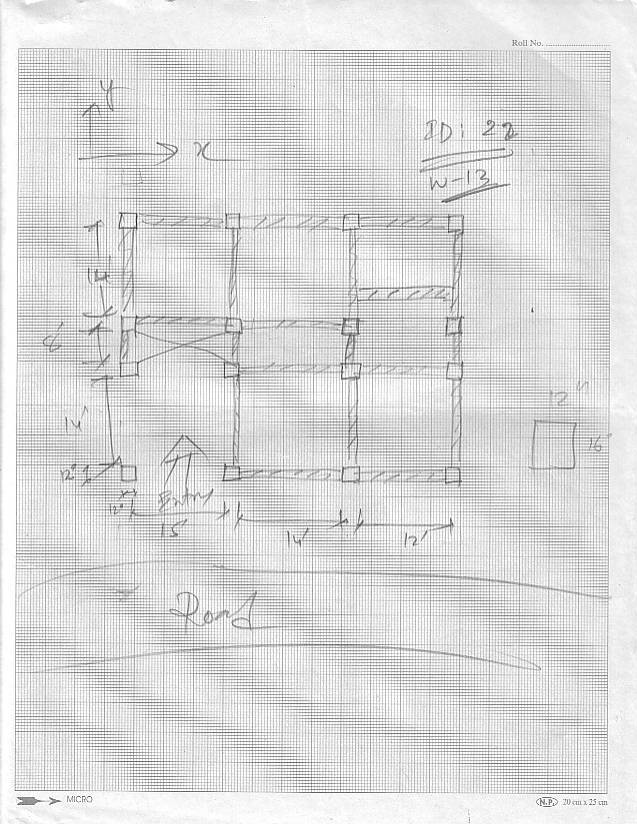 Roll No. ........................
y
x
ID: 22
W-13
14'
8'
14'
12"
12"
16"
12"
Entry
15'
14'
12'
Road
MICRO
N.P. 20 cm x 25 cm